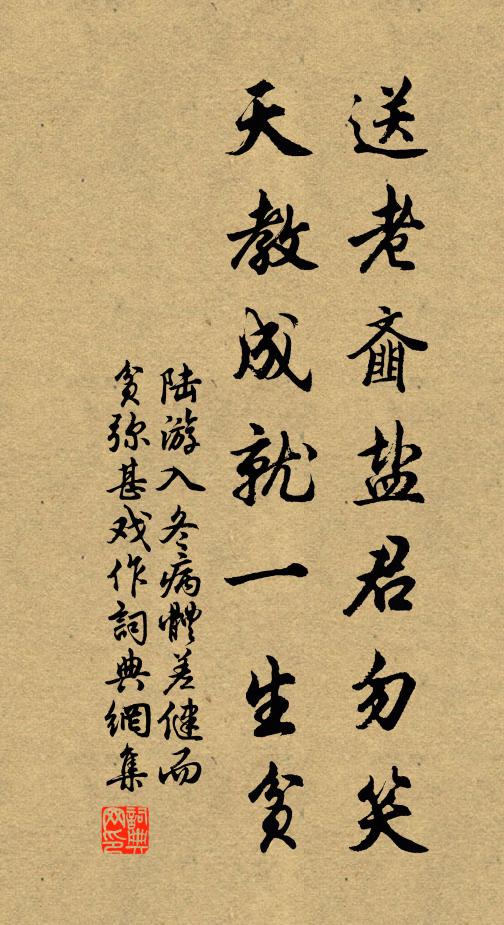 送老齑盐君勿笑
天教成就一生贫
陆游入冬病体差健而
贫弥甚戏作詞典網集
詞典网印